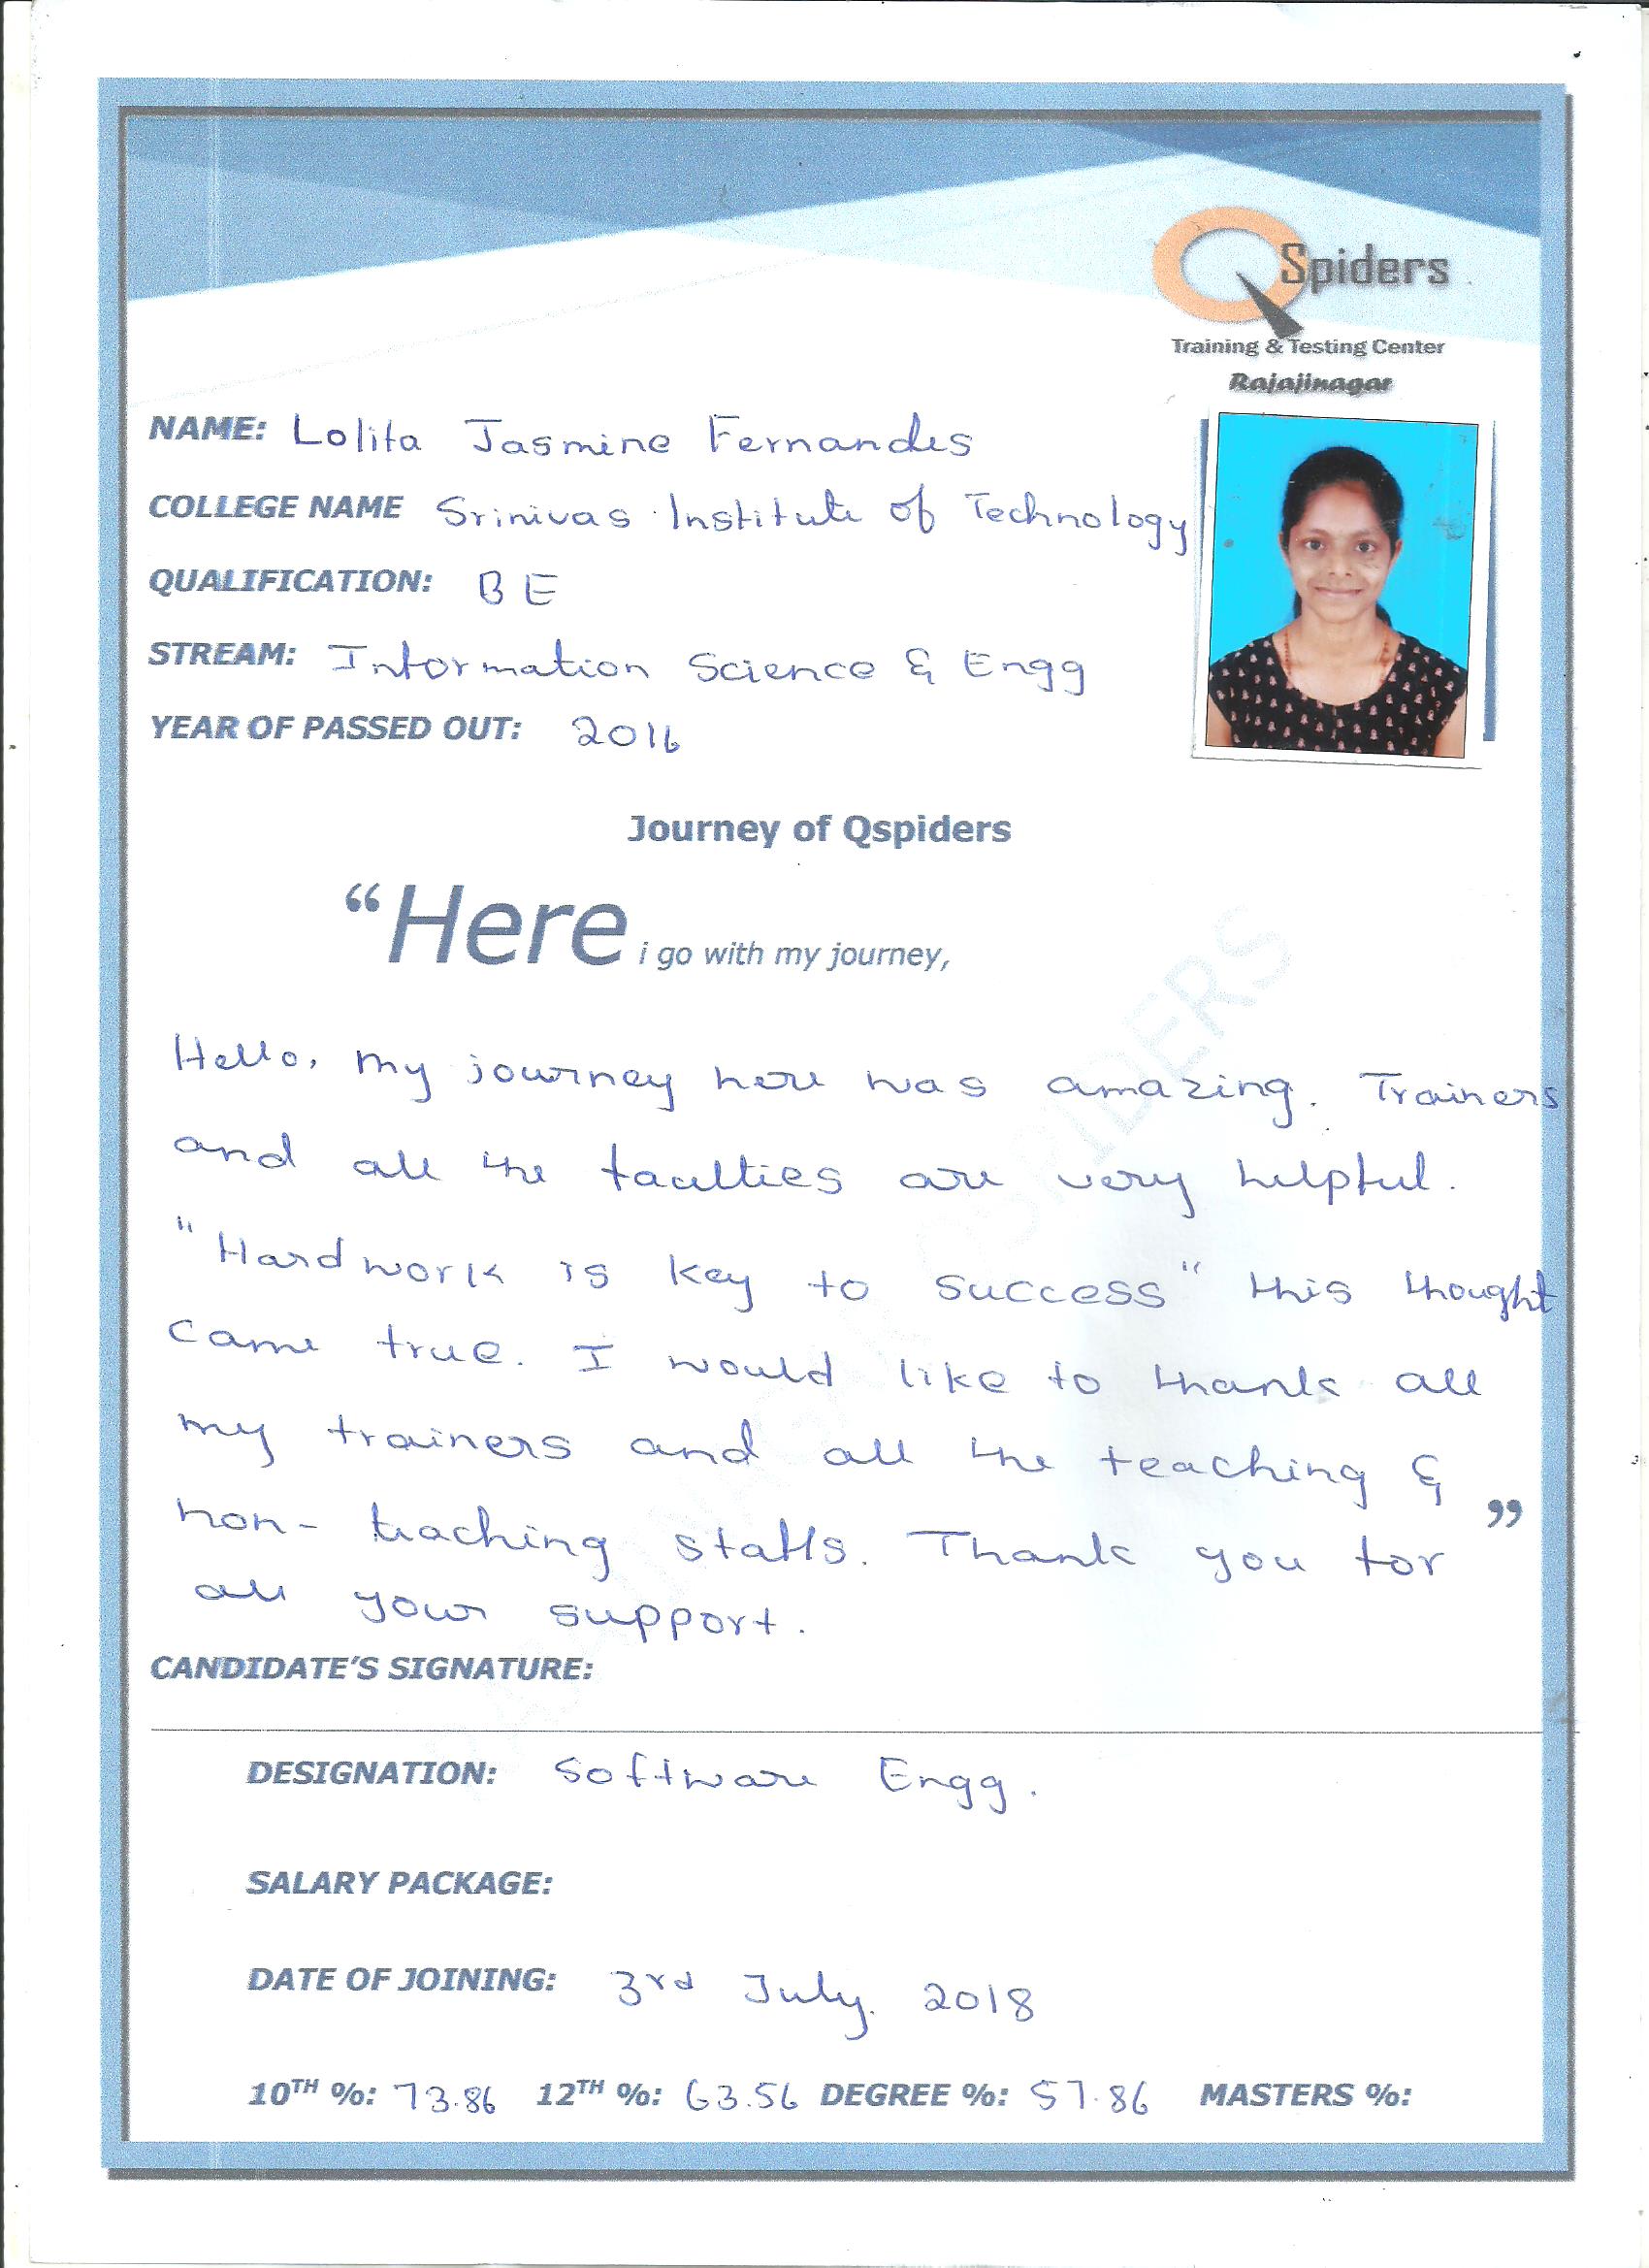 QSpiders
Training & Testing Center
Rajajinagar
NAME: Lolita Jasmine Fernandes
COLLEGE NAME Srinivas Institute of Technology
QUALIFICATION: BE
STREAM: Information Science & Engg
YEAR OF PASSED OUT: 2016
Journey of Qspiders
“Here i go with my journey,
Hello, my journey here was amazing. Trainers
and all the faculties are very helpful.
"Hardwork is key to success" this thought
came true. I would like to thank all
my trainers and all the teaching &
non-teaching staffs. Thank you for ”
all your support.
CANDIDATE'S SIGNATURE:
DESIGNATION: Software Engg.
SALARY PACKAGE:
DATE OF JOINING: 3rd July. 2018
10TH %: 73.86 12TH %: 63.56 DEGREE %: 57.86 MASTERS %: